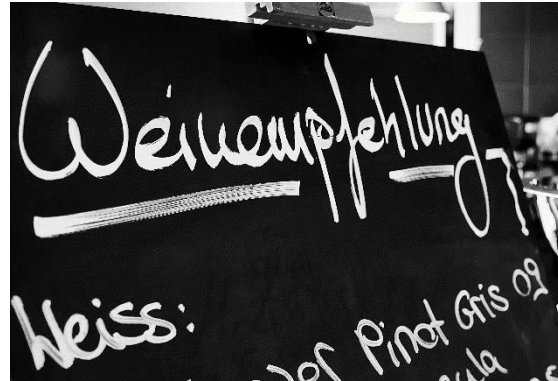 Weinempfehlung
Weiss:
Pinot Gris 09